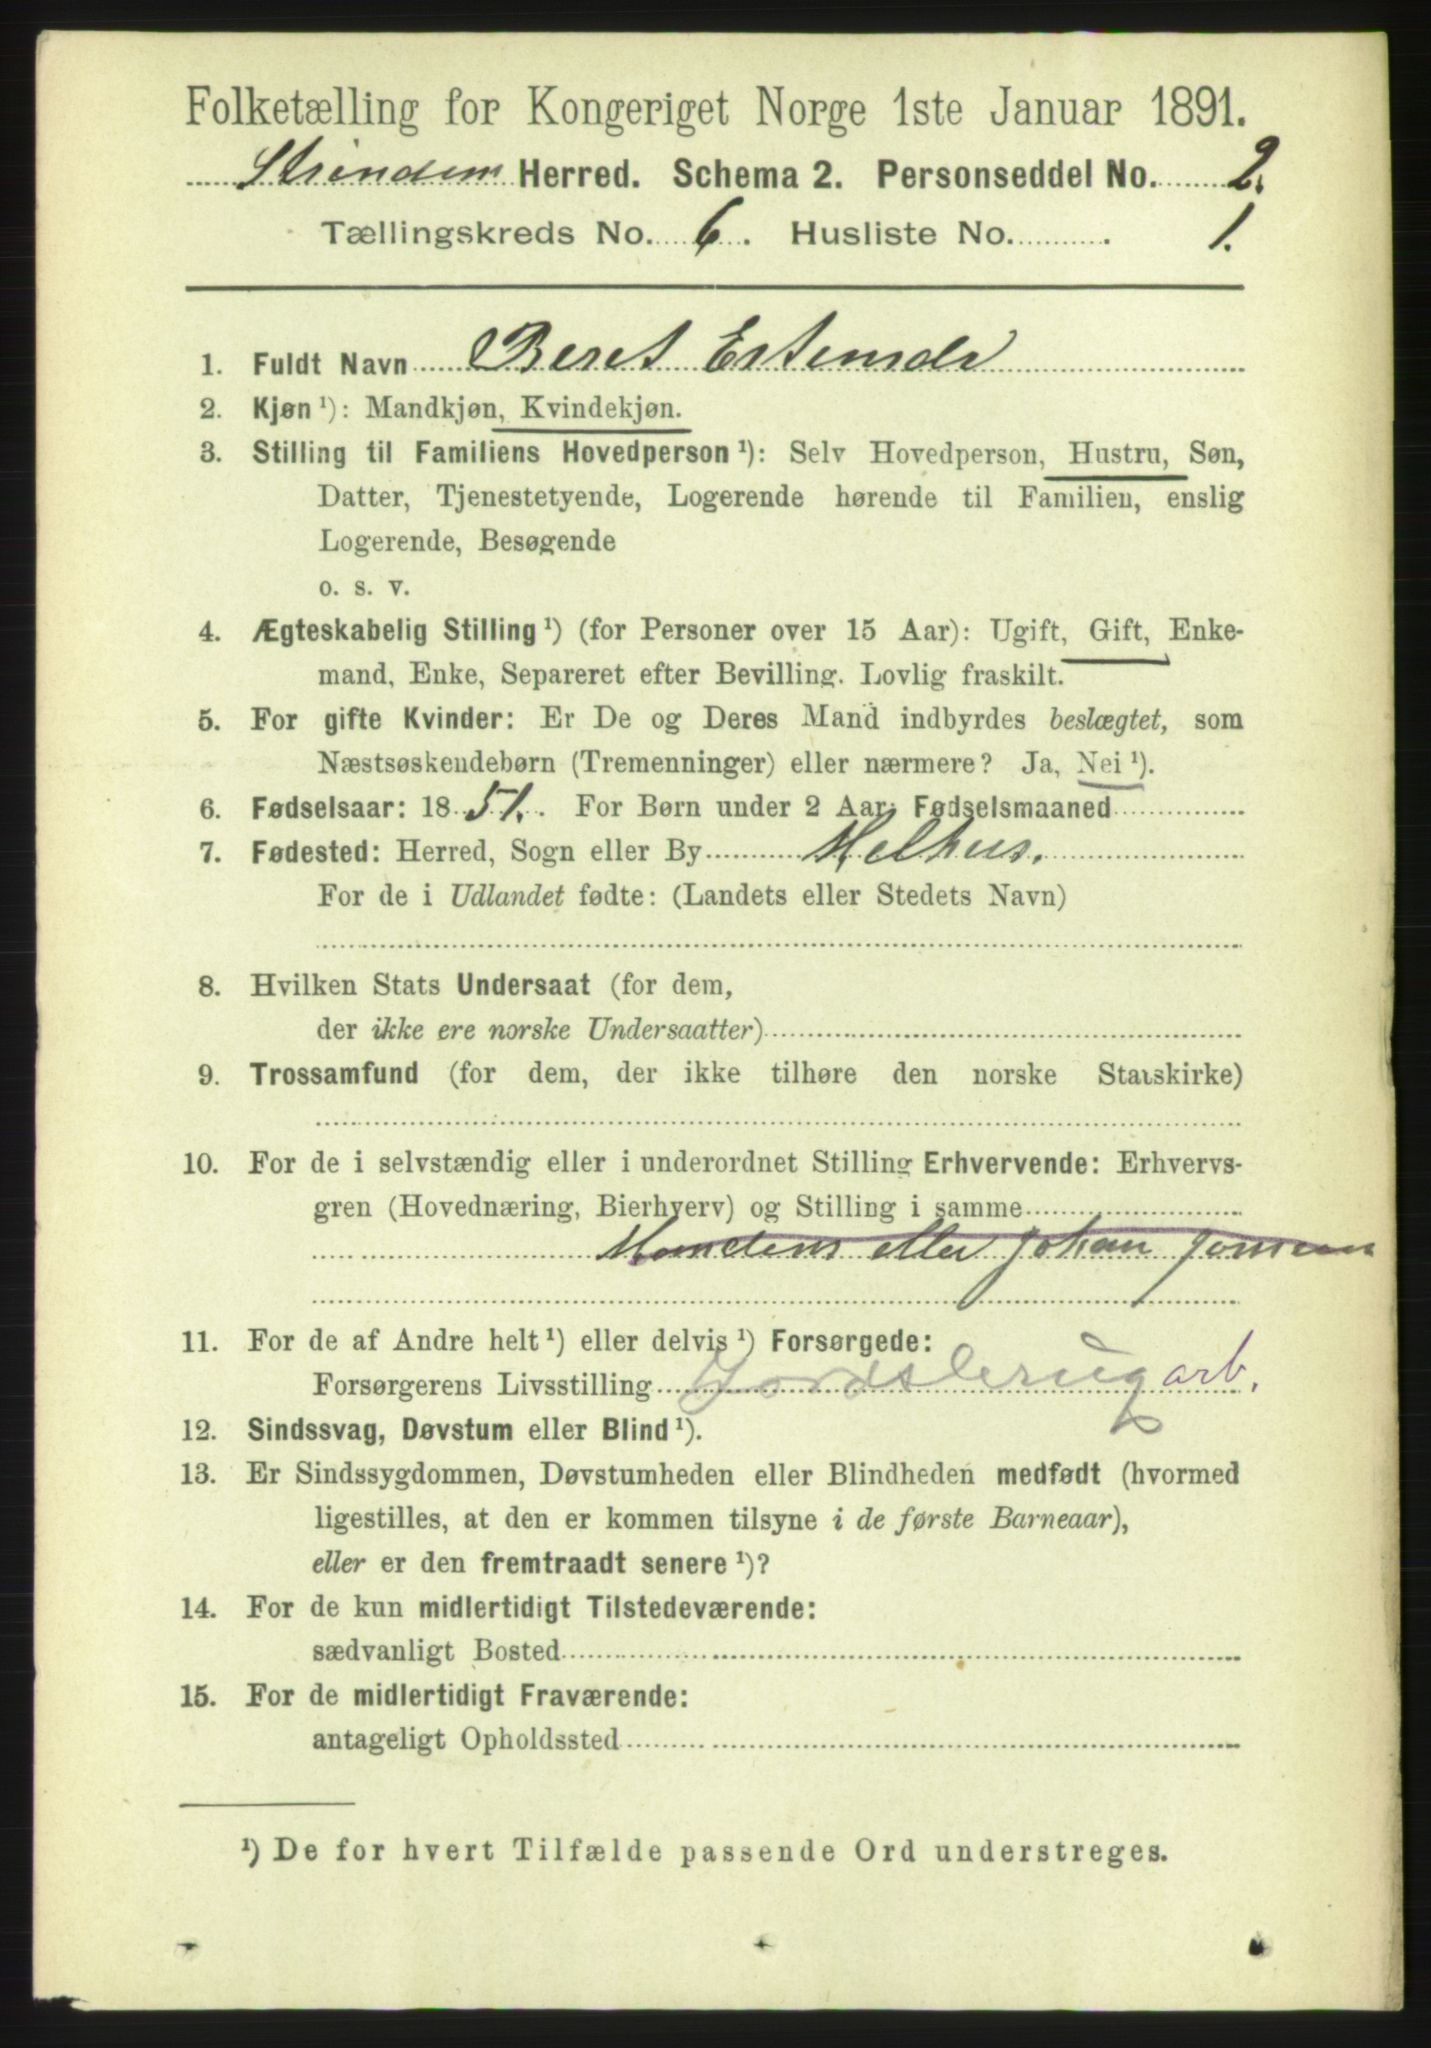 Folketælling for Kongeriget Norge 1ste Januar 1891.
Strinden Herred. Schema 2. Personseddel No. 2.
Tællingskreds No. 6. Husliste No. 1.
1. Fuldt Navn Beret Estensdr
2. Kjøn ¹): Mandkjøn, Kvindekjøn.
3. Stilling til Familiens Hovedperson ¹): Selv Hovedperson, Hustru, Søn,
Datter, Tjenestetyende, Logerende hørende til Familien, enslig
Logerende, Besøgende
o. s. v.
4. Ægteskabelig Stilling ¹) (for Personer over 15 Aar): Ugift, Gift, Enke-
mand, Enke, Separeret efter Bevilling. Lovlig fraskilt.
5. For gifte Kvinder: Er De og Deres Mand indbyrdes beslægtet, som
Næstsøskendebørn (Tremenninger) eller nærmere? Ja, Nei ¹).
6. Fødselsaar: 1851. For Børn under 2 Aar: Fødselsmaaned
7. Fødested: Herred, Sogn eller By Melhus.
For de i Udlandet fødte: (Landets eller Stedets Navn)
8. Hvilken Stats Undersaat (for dem,
der ikke ere norske Undersaatter)
9. Trossamfund (for dem, der ikke tilhøre den norske Statskirke)
10. For de i selvstændig eller i underordnet Stilling Erhvervende: Erhvervs-
gren (Hovednæring, Bierhverv) og Stilling i samme
Mandens eller Johan Jonsen
11. For de af Andre helt ¹) eller delvis ¹) Forsørgede:
Forsørgerens Livsstilling arb.
12. Sindssvag, Døvstum eller Blind ¹).
13. Er Sindssygdommen, Døvstumheden eller Blindheden medfødt (hvormed
ligestilles, at den er kommen tilsyne i de første Barneaar),
eller er den fremtraadt senere ¹)?
14. For de kun midlertidigt Tilstedeværende:
sædvanligt Bosted
15. For de midlertidigt Fraværende:
antageligt Opholdssted
¹) De for hvert Tilfælde passende Ord understreges.